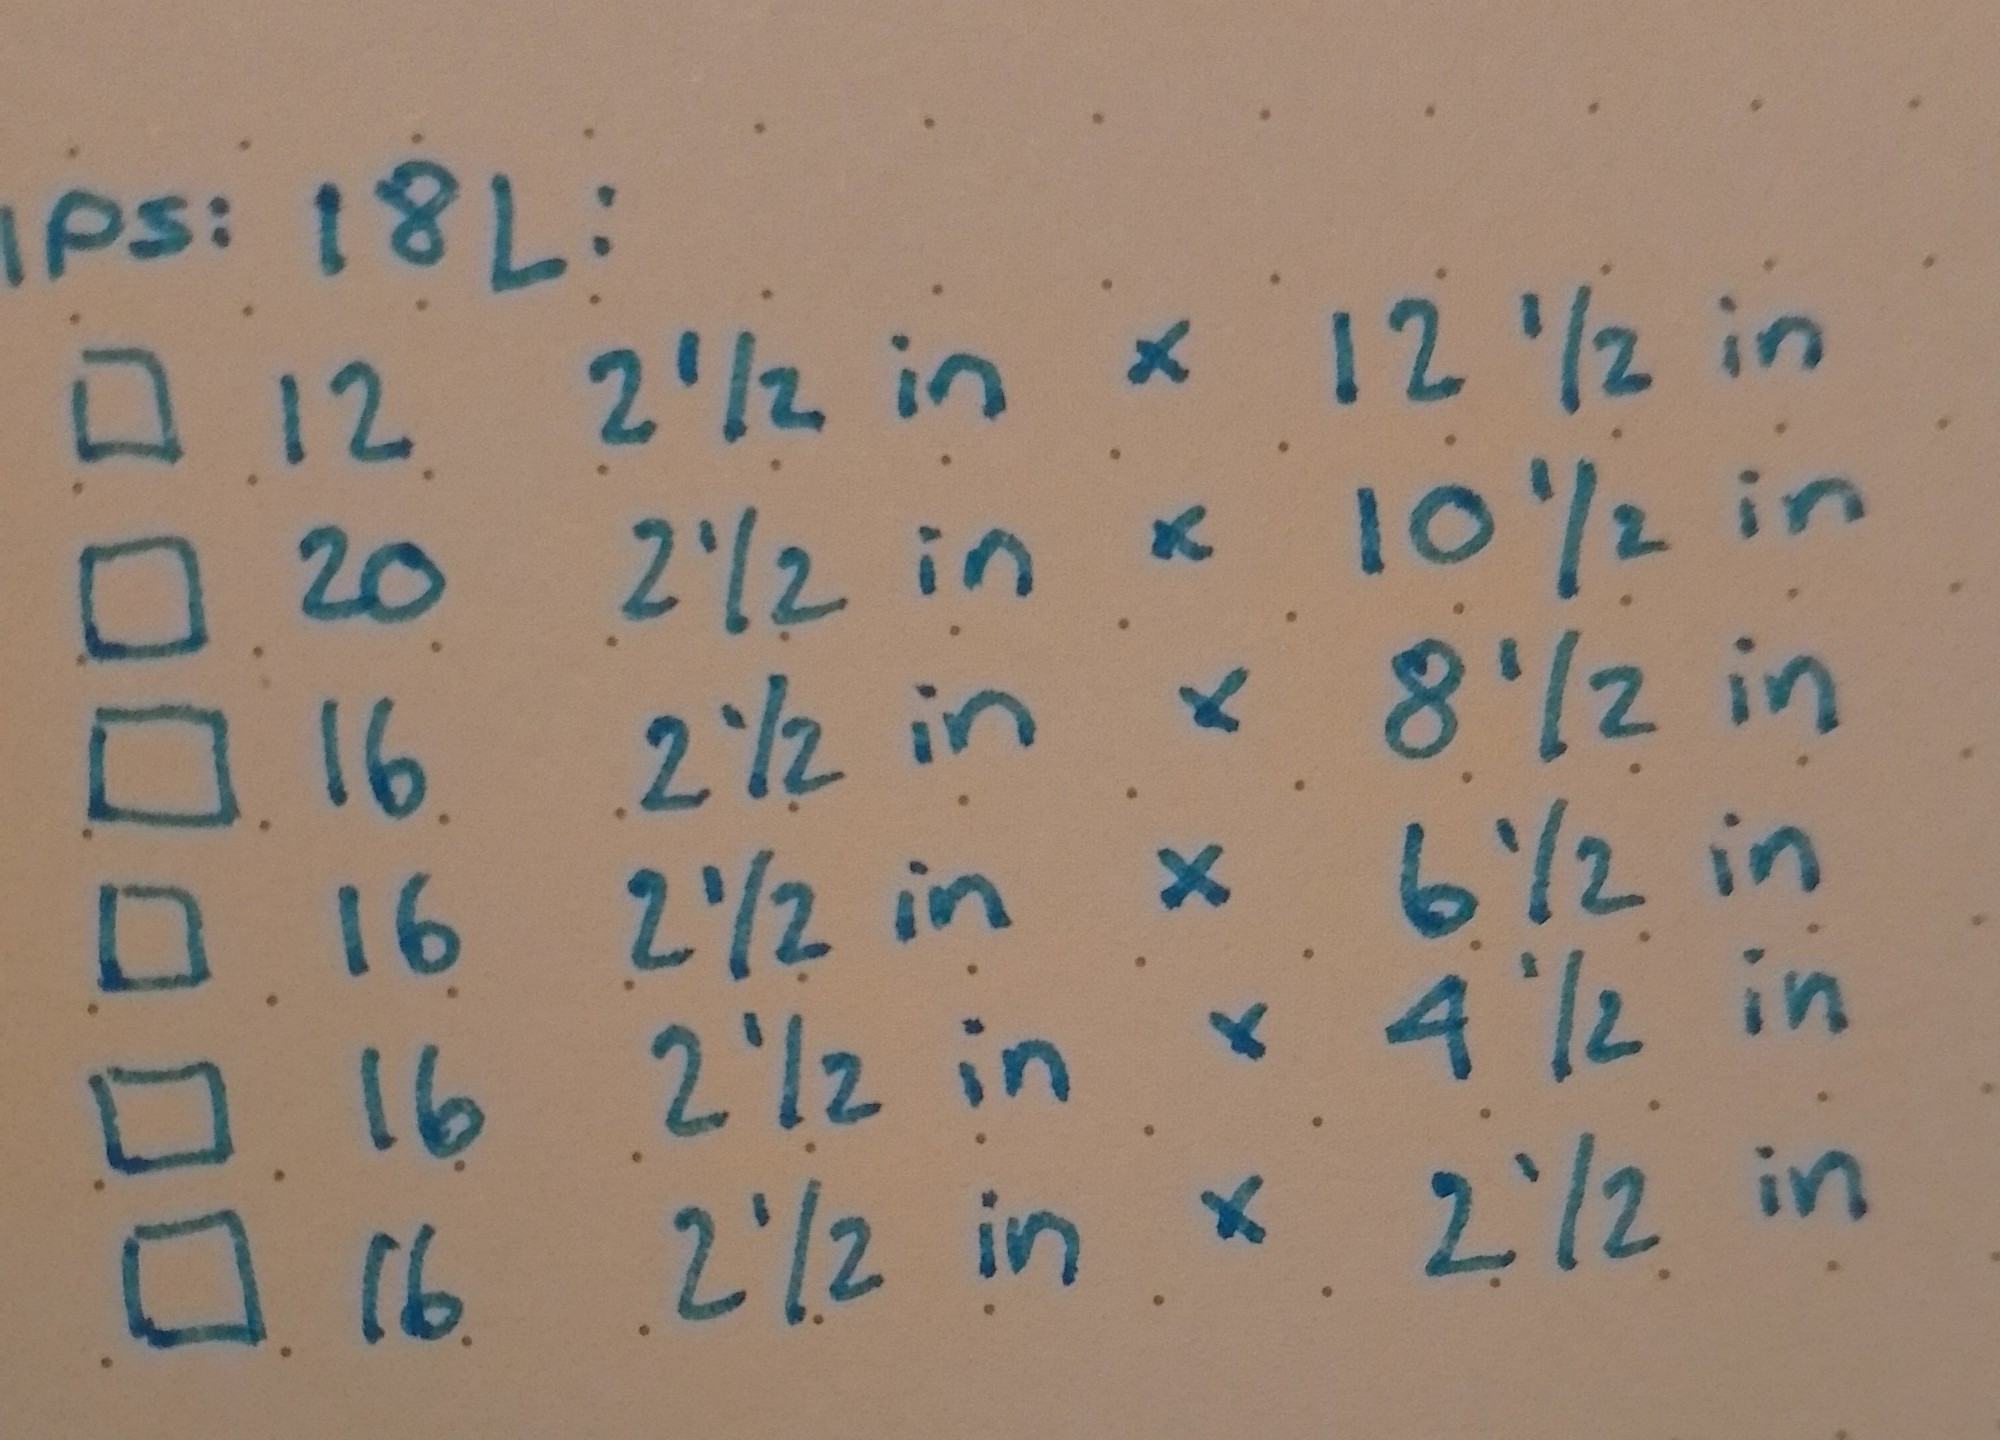 ips: 18L:
☐ 12 2 1/2 in x 12 1/2 in
☐ 20 2 1/2 in x 10 1/2 in
☐ 16 2 1/2 in x 8 1/2 in
☐ 16 2 1/2 in x 6 1/2 in
☐ 16 2 1/2 in x 4 1/2 in
☐ 16 2 1/2 in x 2 1/2 in